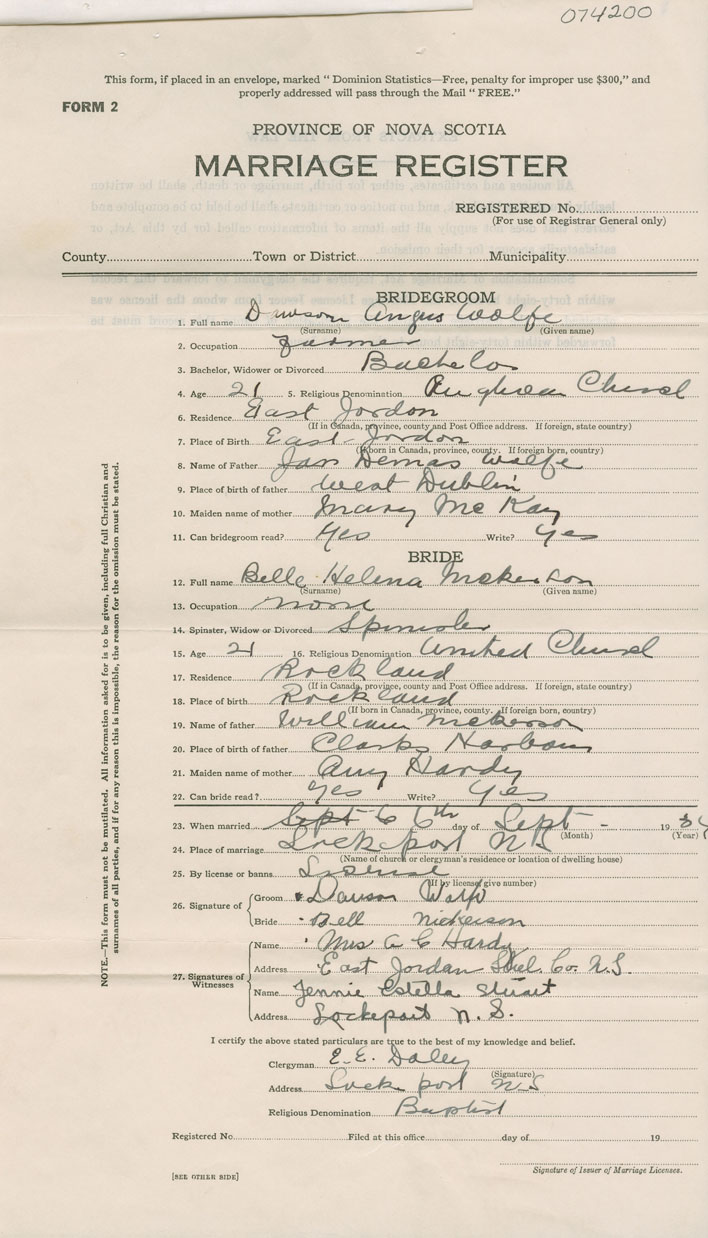 074200
This form, if placed in an envelope, marked “ Dominion Statistics—Free, penalty for improper use $300,” and
properly addressed will pass through the Mail “ FREE.”
FORM 2
PROVINCE OF NOVA SCOTIA
MARRIAGE REGISTER
REGISTERED No.
(For use of Registrar General only)
County Town or District Municipality
BRIDEGROOM
1. Full name Dawson Angus Wolfe
(Surname) (Given name)
2. Occupation Farmer
3. Bachelor, Widower or Divorced Bachelor
4. Age 21 5. Religious Denomination Church
6. Residence East Jordon
(If in Canada, province, county and Post Office address. If foreign, state country)
7. Place of Birth East Jordon
(If born in Canada, province, county. If foreign born, country)
8. Name of Father Jas Demas Wolfe
9. Place of birth of father West Dublin
10. Maiden name of mother Mary Mc Kay
11. Can bridegroom read? Yes Write? Yes
BRIDE
12. Full name Belle Helena
(Surname) (Given name)
13. Occupation none
14. Spinster, Widow or Divorced Spinster
15. Age 21 16. Religious Denomination United Church
17. Residence Rockland
(If in Canada, province, county and Post Office address. If foreign, state country)
18. Place of birth Rockland
(If born in Canada, province, county. If foreign born, country)
19. Name of father William
20. Place of birth of father Clarks Harbour
21. Maiden name of mother Amy Hardy
22. Can bride read? Yes Write? Yes
23. When married Sept 6 6th day of Sept - 19
(Month) (Year)
24. Place of marriage Lockeport N S
(Name of church or clergyman's residence or location of dwelling house)
25. By license or banns License
(If by license give number)
26. Signature of Groom Dawson Wolfe
Bride Bell Nickerson
27. Signatures of Witnesses Name Mrs A C Hardy
Address East Jordan Shel. Co. N.S.
Name Jennie Estella Stuart
Address Lockeport N. S.
I certify the above stated particulars are true to the best of my knowledge and belief.
Clergyman E. E. Daley
(Signature)
Address Lock port N S
Religious Denomination Baptist
Registered No. Filed at this office day of 19
Signature of Issuer of Marriage Licenses.
[SEE OTHER SIDE]
NOTE.—This form must not be mutilated. All information asked for is to be given, including full Christian and
surnames of all parties, and if for any reason this is impossible, the reason for the omission must be stated.